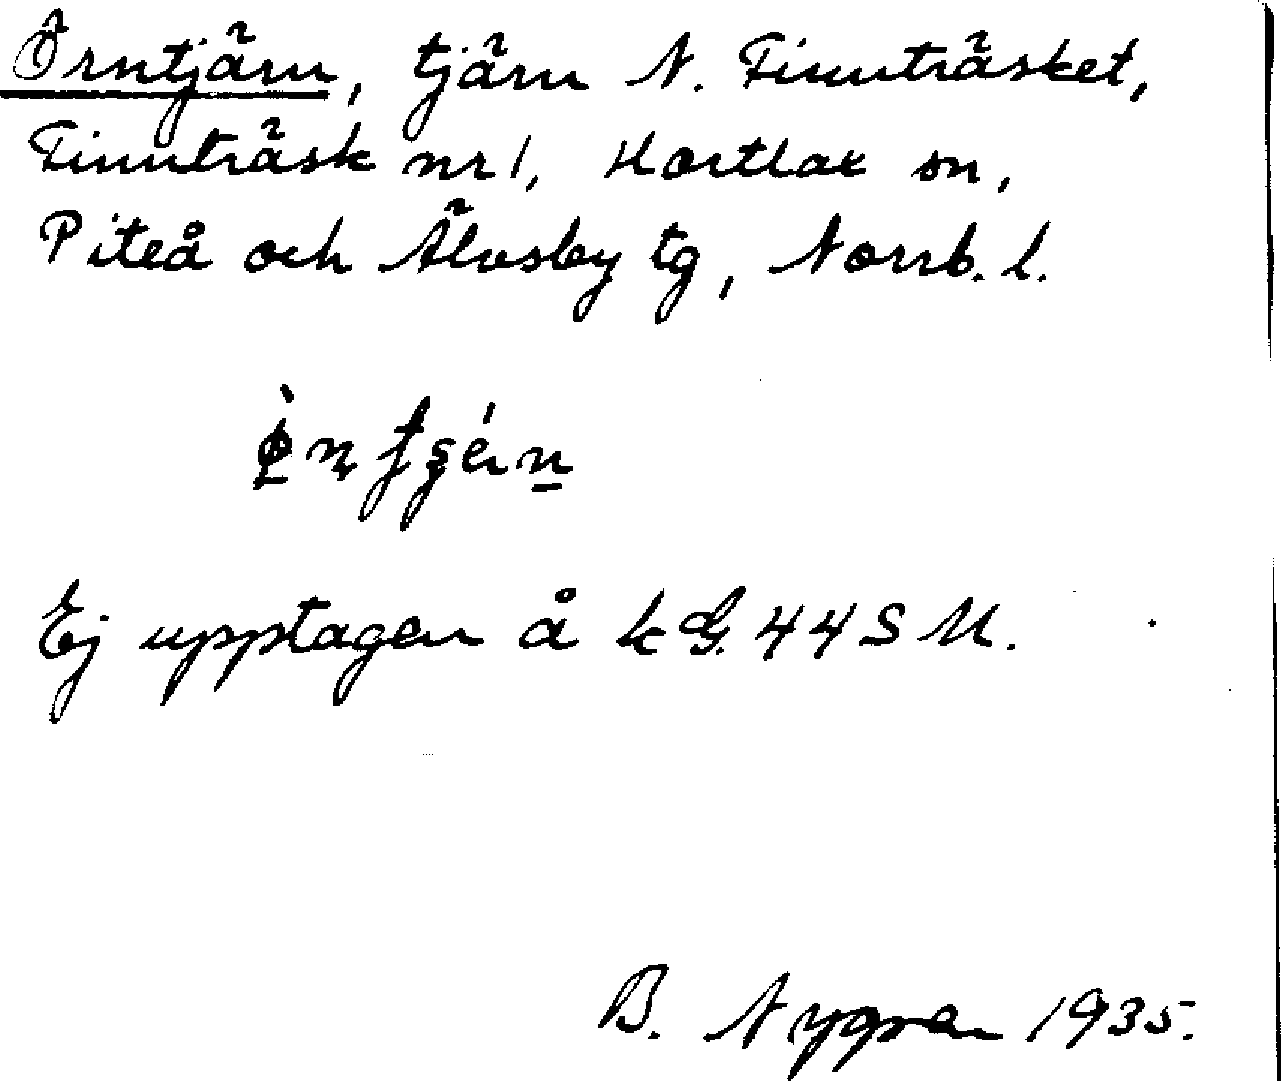 Örntjärn, tjärn N. Finnträsket,
Finnträsk nr 1, Hortlax sn,
Piteå och Älvsby tg, Norrb. l.
Ej upptagen å kG. 44 S M.
B. Nygren 1935.